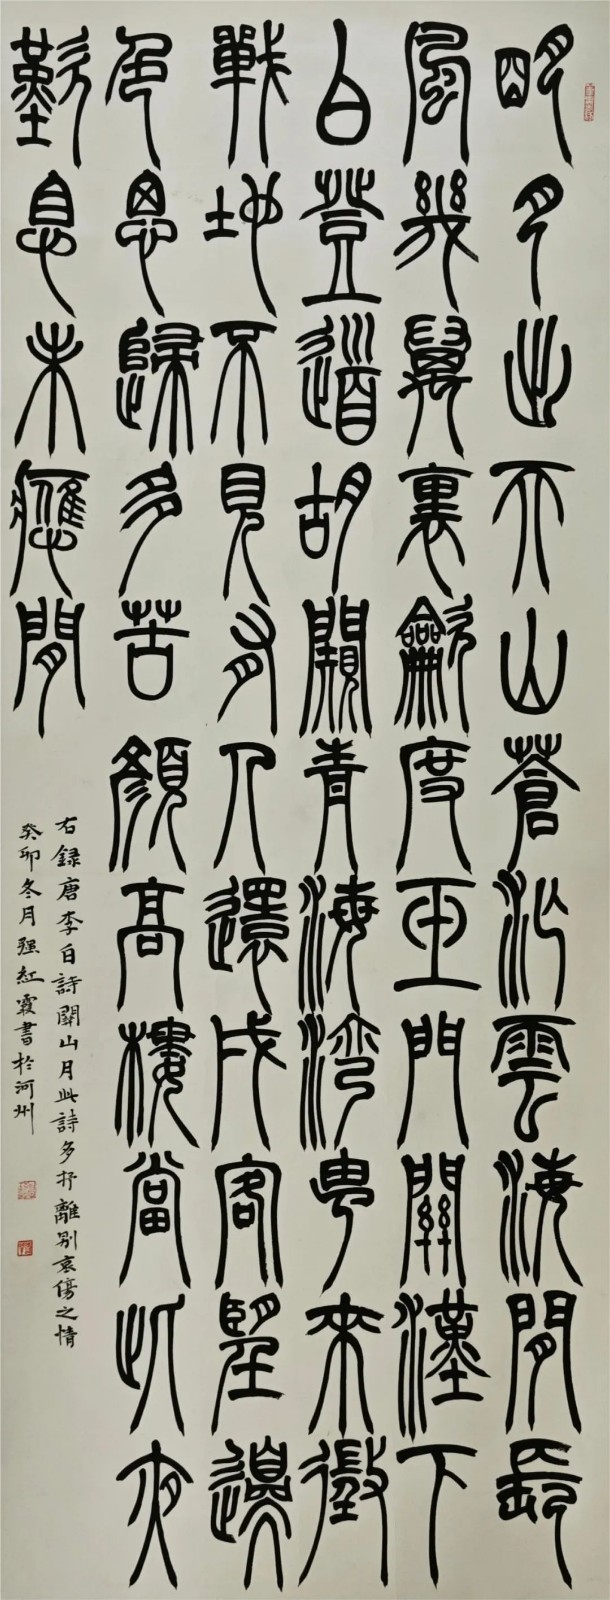 明月出天山蒼茫雲海閒長
風幾萬裏龡度玉門關漢下
白登道胡闚青海灣由來徵
戰地不見有人還戍客望邊
色思歸多苦顏高樓當此夜
歎息未應閒
右錄唐李白詩關山月此詩多抒離別哀傷之情
癸卯冬月强紅霞書於河州